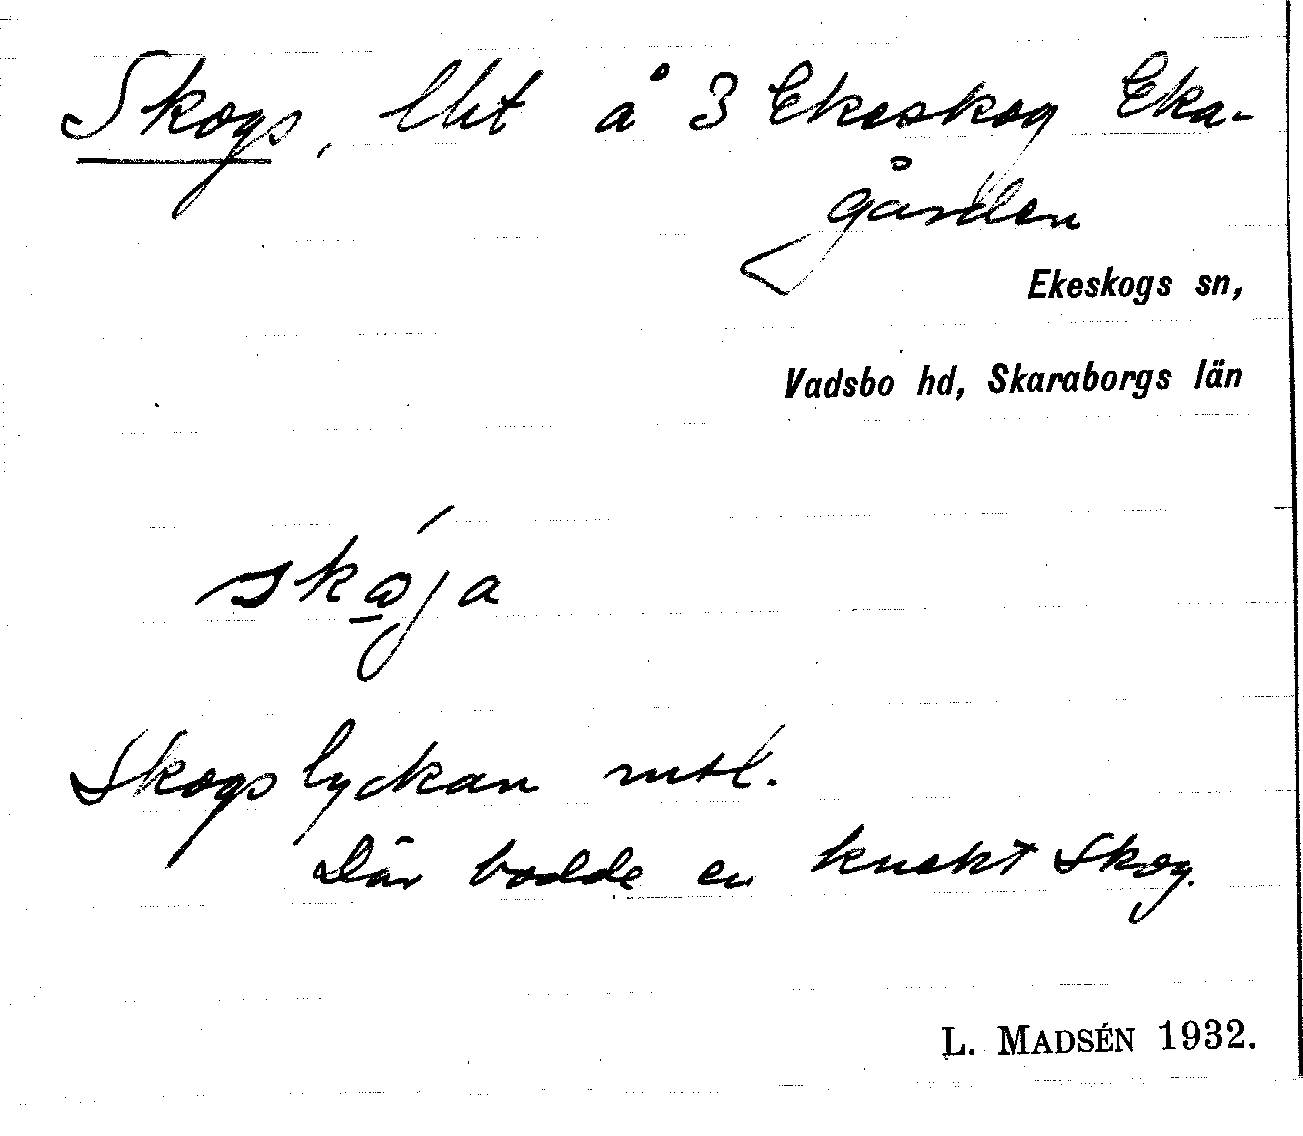 Skogs, lht å 3 Ekeskog Eka-
gården
Ekeskogs sn,
Vadsbo hd, Skaraborgs län
skoja
Skogslyckan mtl.
Där bodde en knekt Skog.
L. MADSÉN 1932.